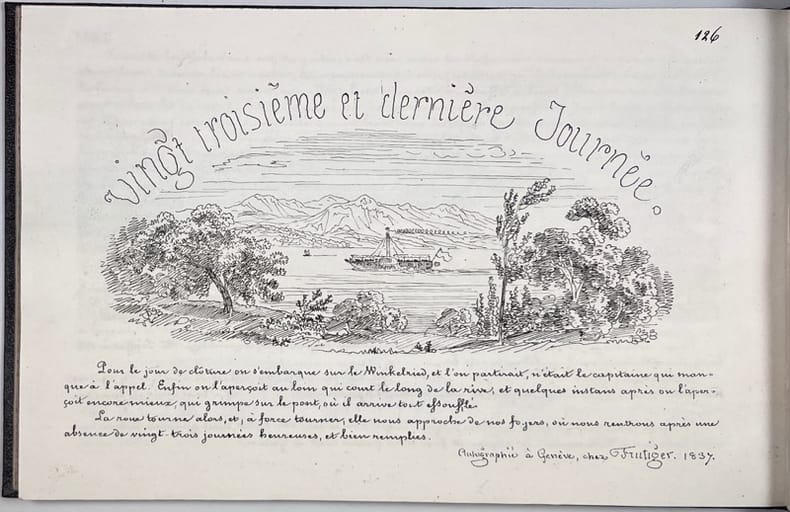 126
Vingt troisième et dernière Journée.
Pour le jour de clôture on s'embarque sur le Winkelried, et l'on partirait, n'était le capitaine qui man-
que à l'appel. Enfin on l'aperçoit au loin qui court le long de la rive, et quelques instans après on l'aper-
çoit encore mieux, qui grimpe sur le pont, où il arrive tout essoufflé.
La roue tourne alors, et, à force tourner, elle nous approche de nos foyers, où nous rentrons après une
absence de vingt-trois journées heureuses, et bien remplies.
Autographié à Genève, chez Frutiger. 1837.